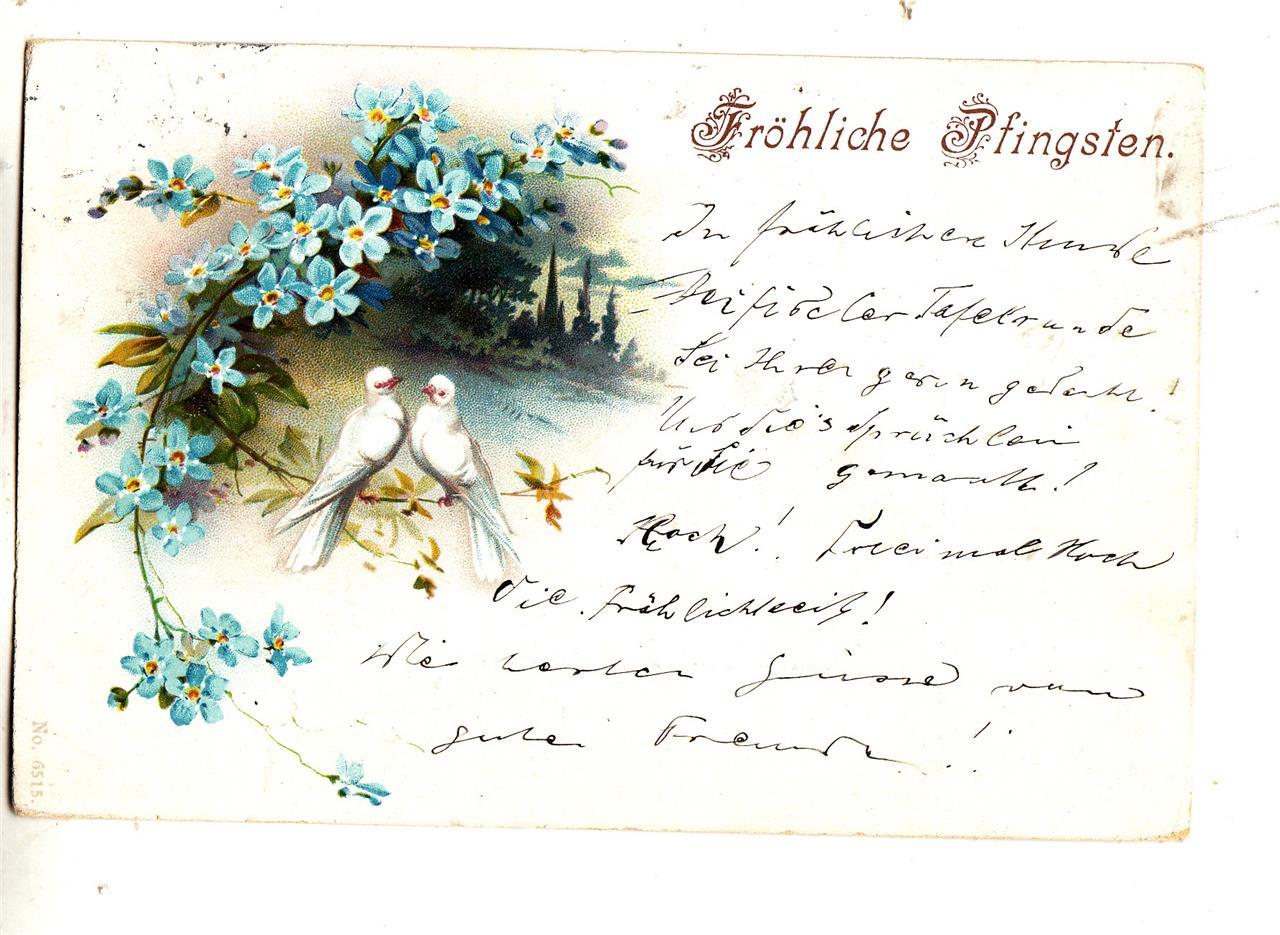 Fröhliche Pfingsten.
In fröhlicher Stunde
Bei fideler Tafelrunde
Sei Ihrer gern gedacht!
Und dies Sprüchlein
für Sie gemacht!
Hoch! Dreimal Hoch
die Fröhlichkeit!
Die besten Grüsse von
guten Freunden!
No. 6515.